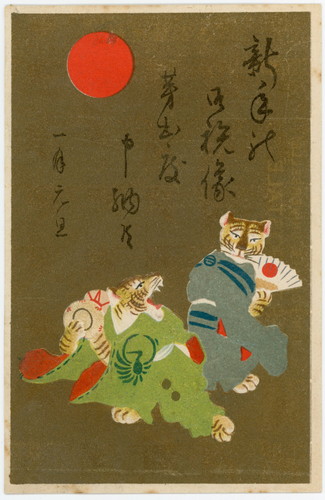 新年の
御祝儀
芽出度
申納候
一月元旦